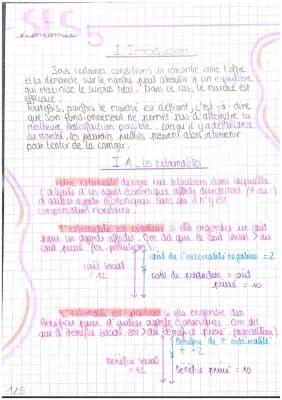 SES
économie
5
I. Introduction
Sous certaines conditions, la rencontre entre l'offre
et la demande sur le marché peut aboutir à un équilibre
qui maximise le surplus total. Dans ce cas, le marché est
efficace.
Toutefois, parfois le marché est défaillant, c'est-à-dire
que son fonctionnement ne permet pas d'atteindre la
meilleure satisfaction possible. Lorsqu'il y a défaillance
du marché, les pouvoirs publics peuvent alors intervenir
pour tenter de la corriger.
I A. Les externalités
Une externalité désigne une situation dans laquelle
l'activité d'un agent économique affecte directement (+ ou -)
d'autres agents économiques sans qu'il n'y ait
compensation monétaire.
L'externalité est négative si elle engendre un coût
pour un agent affecté. On dit que le coût social > au
coût privé (ex: pollution).
coût de l'externalité négative = 2
coût social
= 12
coût de production = coût
privé = 10
L'externalité est positive si elle engendre des
bénéfices pour d'autres agents économiques. On dit
que le bénéfice social est > au bénéfice privé.
Bénéfice de l'externalité
+ = 2
Bénéfice social
= 12
Bénéfice privé = 10
1/5